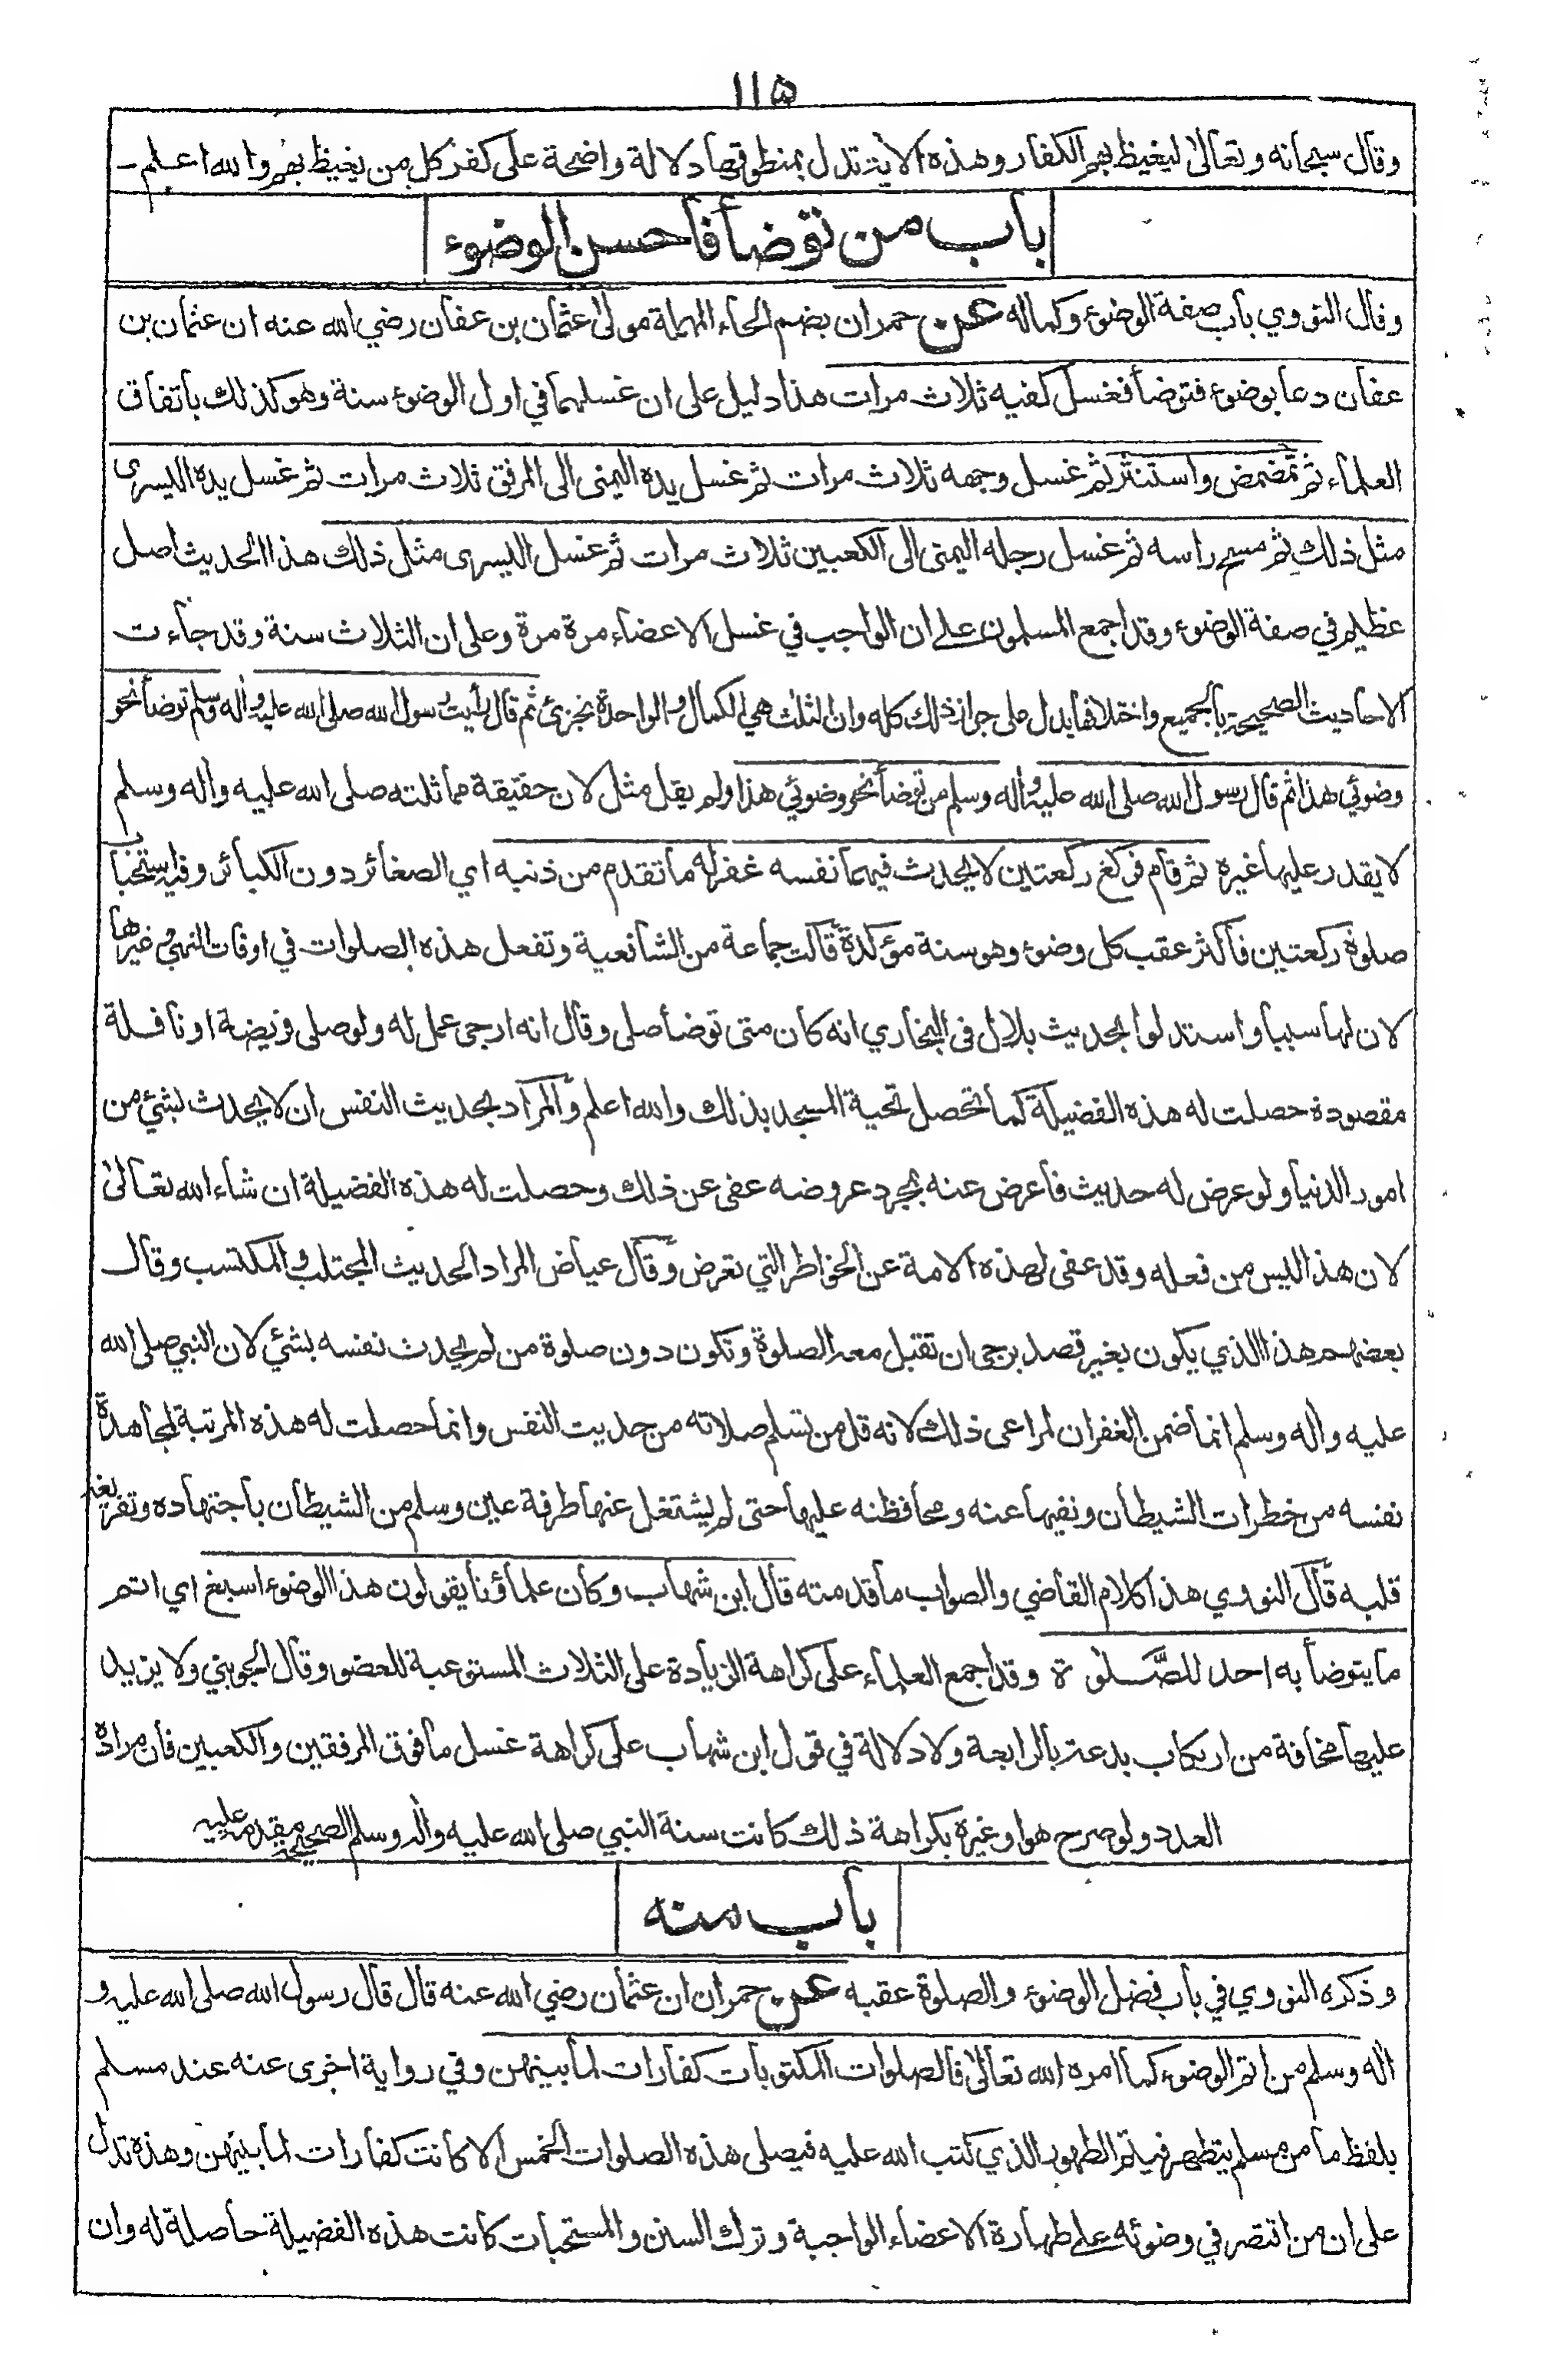 ١١٥
وقال سبحانه وتعالىٰ ليغيظ بهم الكفار وهذه الاية تدل بمنطوقها دلالة واضحة على كفر كل من يغيظ بهم والله اعلم -
باب من توضأ فاحسن الوضوء
وقال النووي باب صفة الوضوء وكماله عن حمران بضم الحاء المهملة مولىٰ عثمان بن عفان رضي الله عنه ان عثمان بن
عفان دعا بوضوء فتوضأ فغسل كفيه ثلاث مرات هذا دليل على ان غسلهما في اول الوضوء سنة وهو كذلك باتفاق
العلماء ثم تمضمض واستنثر ثم غسل وجهه ثلاث مرات ثم غسل يده اليمنى الى المرفق ثلاث مرات ثم غسل يده اليسرى
مثل ذلك ثم مسح راسه ثم غسل رجله اليمنى الى الكعبين ثلاث مرات ثم غسل اليسرى مثل ذلك هذا الحديث اصل
عظيم في صفة الوضوء وقد اجمع المسلمون على ان الواجب في غسل الاعضاء مرة مرة وعلى ان الثلاث سنة وقد جاءت
الاحاديث الصحيحة بالجميع واختلافها يدل على جواز ذلك كله وان الثلث هي الكمال والواحدة تجزئ ثم قال رأيت رسول الله صلى الله عليه واٰله وسلم توضأ نحو
وضوئي هذا ثم قال رسول الله صلى الله عليه واٰله وسلم من توضأ نحو وضوئي هذا ولم يقل مثل لان حقيقة مماثلته صلى الله عليه واٰله وسلم
لا يقدر عليها غيره ثم قام فركع ركعتين لا يحدث فيهما نفسه غفر له ما تقدم من ذنبه اي الصغائر دون الكبائر وفيه استحباب
صلوة ركعتين فاكثر عقب كل وضوء وهو سنة مؤكدة قالت جماعة من الشافعية وتفعل هذه الصلوات في اوقات النهي وغيرها
لان لها سببا واستدلوا بحديث بلال في البخاري انه كان متى توضأ صلى وقال انه ارجى عمل له ولو صلى فريضة او نافلة
مقصودة حصلت له هذه الفضيلة كما تحصل تحية المسجد بذلك والله اعلم والمراد بحديث النفس ان لا يحدث بشئ من
امور الدنيا ولو عرض له حديث فاعرض عنه بمجرد عروضه عفى عن ذلك وحصلت له هذه الفضيلة ان شاء الله تعالىٰ
لان هذا ليس من فعله وقد عفى لهذه الامة عن الخواطر التي تعرض وقال عياض المراد الحديث المجتلب والمكتسب وقال
بعضهم هذا الذي يكون بغير قصد يرجى ان تقبل معه الصلوة وتكون دون صلوة من لم يحدث نفسه بشئي لان النبي صلى الله
عليه واٰله وسلم انما ضمن الغفران لمراعى ذلك لانه قل من تسلم صلاته من حديث النفس وانما حصلت له هذه المرتبة لمجاهدة
نفسه من خطرات الشيطان ونفيها عنه ومحافظته عليها حتى لم يشتغل عنها طرفة عين وسلم من الشيطان باجتهاده وتفريغه
قلبه قال النووي هذا كلام القاضي والصواب ما قدمته قال ابن شهاب وكان علماؤنا يقولون هذا الوضوء اسبغ اي اتم
ما يتوضأ به احد للصَّلوة وقد اجمع العلماء على كراهة الزيادة على الثلاث المستوعبة للعضو وقال الجويني ولا يزيد
عليها مخافة من ارتكاب بدعة بالرابعة ولا دلالة في قول ابن شهاب على كراهة غسل ما فوق المرفقين والكعبين فان مراده
العدد ولو صرح هو او غيره بكراهة ذلك كانت سنة النبي صلى الله عليه واٰله وسلم الصحيحة مقدمة عليه
باب منه
وذكره النووي في باب فضل الوضوء والصلوة عقبه عن حمران ان عثمان رضي الله عنه قال قال رسول الله صلى الله عليه و
اٰله وسلم من اتم الوضوء كما امره الله تعالىٰ فالصلوات المكتوبات كفارات لما بينهن وفي رواية اخرى عنه عند مسلم
بلفظ ما من مسلم يتطهر فيتم الطهور الذي كتب الله عليه فيصلى هذه الصلوات الخمس الا كانت كفارات لما بينهن وهذه تدل
على ان من اقتصر في وضوئه على طهارة الاعضاء الواجبة وترك السنن والمستحبات كانت هذه الفضيلة حاصلة له وان